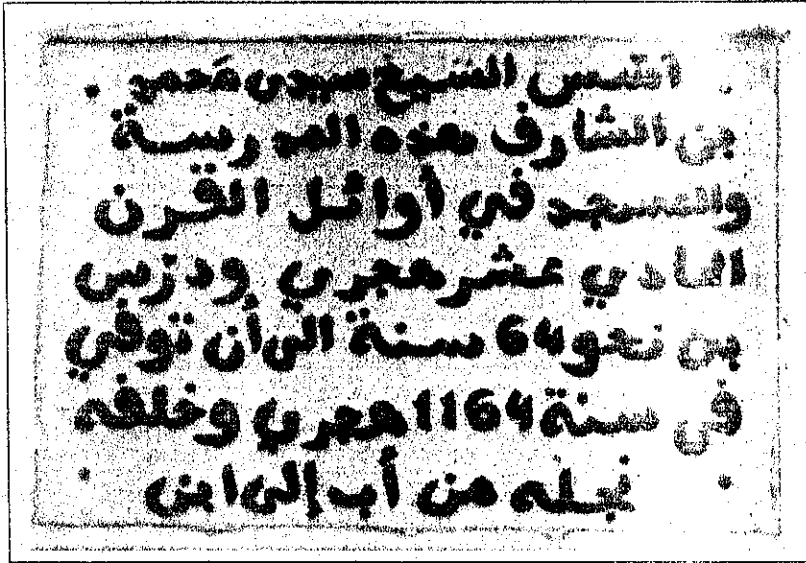 أسس الشيخ سيدي مَحمد
بن الشارف هذه المدرسة
والمسجد في أوائل القرن
الحادي عشر هجري ودرّس
بن نحو 64 سنة الى أن توفي
في سنة 1164 هجري وخلفه
نجله من أب إلى ابن